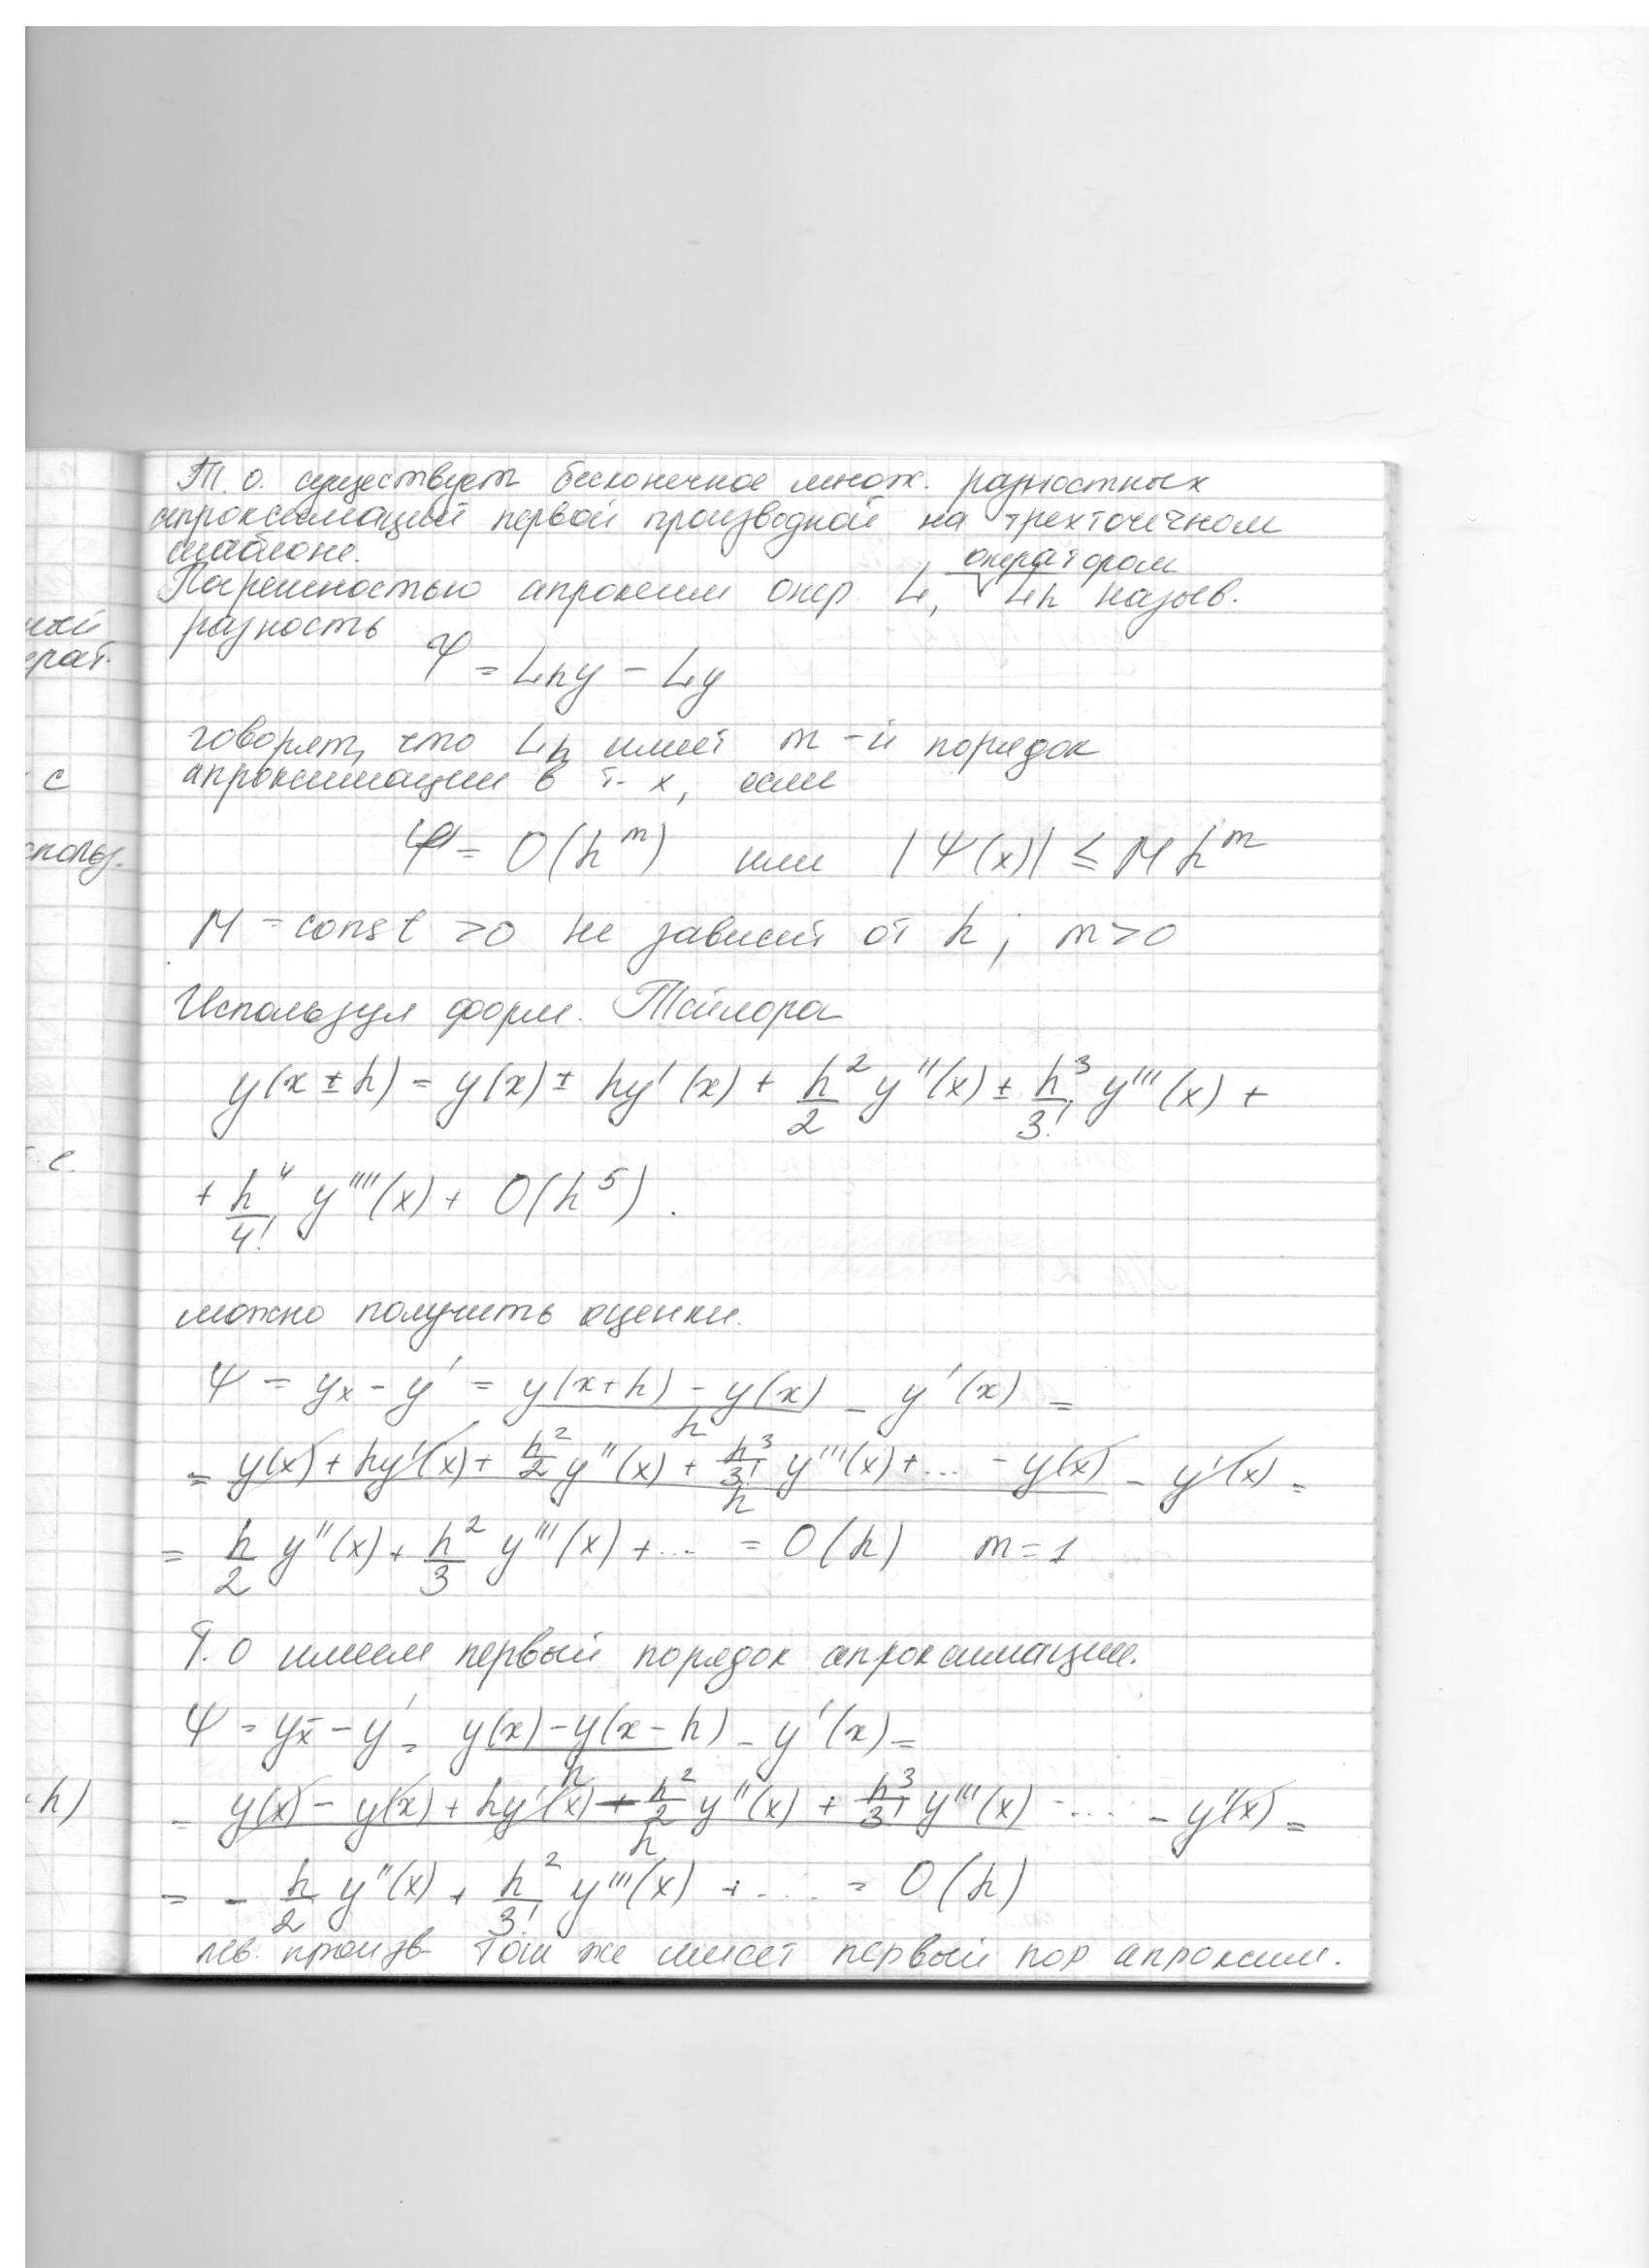 Т.о. существует бесконечное множ. разностных
апроксимаций первой производной на трехточечном
шаблоне.
оператором
Погрешностью апроксим опер L, Lh назыв.
разность
Ψ = Lhy - Ly
говорят, что Lh имеет m-й порядок
апроксимации в т. x, если
Ψ = O(h^m) или |Ψ(x)| ≤ Mh^m
M = const >0 не зависит от h; m>0
Используя форм. Тейлора
y(x ± h) = y(x) ± hy'(x) + h^2/2 y''(x) ± h^3/3! y'''(x) +
+ h^4/4! y''''(x) + O(h^5).
можно получить оценки.
Ψ = yx - y' = (y(x+h) - y(x))/h - y'(x) =
= (y(x) + hy'(x) + h^2/2 y''(x) + h^3/3! y'''(x) + ... - y(x))/h - y'(x) =
= h/2 y''(x) + h^2/3 y'''(x) + ... = O(h) m=1
Т.о имеем первый порядок апроксимации.
Ψ = yx̄ - y' = (y(x) - y(x-h))/h - y'(x) =
= (y(x) - y(x) + hy'(x) - h^2/2 y''(x) + h^3/3! y'''(x) - ...)/h - y'(x) =
= - h/2 y''(x) + h^2/3! y'''(x) + ... = O(h)
лев. произв. Том же имеет первый пор апроксим.
ерат.
с
использ.
т.е.
+h)